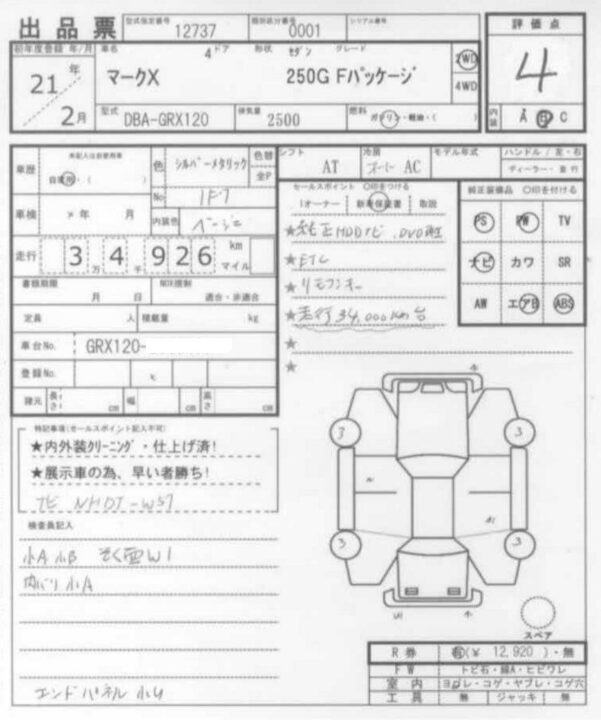 出品票 型式指定番号 12737 類別区分番号 0001 シリアル番号
評価点
4
内装 A B C
初年度登録 年/月 車名 4ドア 形状 セダン グレード
21年 2月 マークX 250G Fパッケージ 2WD 4WD
型式 DBA-GRX120 排気量 2500 燃料 ガソリン・軽油・( )
車歴 未記入は自家用車 自家用・( )
色 シルバーメタリック 色替 全P
No 1F7
車検 年 月 内装色 ベージュ
走行 3万4千926 km マイル
書類期限 月 日 NOX規制 適合・非適合
定員 人 積載量 kg
車台No. GRX120-
登録No.
諸元 長さ cm 幅 cm 高さ cm
シフト AT 冷房 AC モデル年式 ハンドル/左・右
ディーラー・並行
セールスポイント ○印をつける
1オーナー 新車保証書 取説
★純正HDDナビ.DVD再
★ETC
★リモコンキー
★走行34,000km台
★
★
純正装備品 ○印を付ける
PS PW TV
ナビ カワ SR
AW エアB ABS
特記事項(セールスポイント記入不可)
★内外装クリーニング・仕上げ済!
★展示車の為、早い者勝ち!
ナビ NHDT-W57
検査員記入
小A 小B そく面W1
内バリ小A
エンドパネル 小U
3 3
3 3
スペア
R券 有(¥ 12,920)・無
FW トビ石・線A・ヒビワレ
室内 ヨゴレ・コゲ・ヤブレ・コゲ穴
工具 無 ジャッキ 無